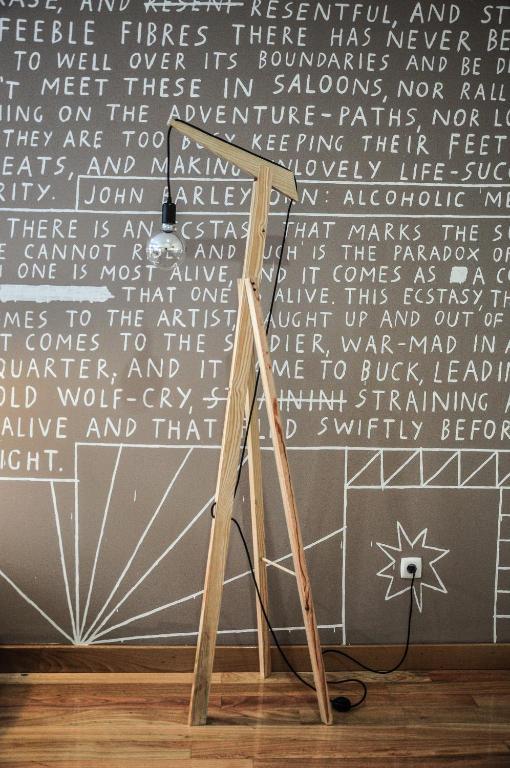 AND RESENT RESENTFUL, AND
FEEBLE FIBRES THERE HAS NEVER
TO WELL OVER ITS BOUNDARIES AND BE
MEET THESE IN SALOONS, NOR
ON THE ADVENTURE-PATHS, NOR
THEY ARE TOO BUSY KEEPING THEIR FEET
AND MAKING UNLOVELY LIFE-SUC
RITY. JOHN BARLEYCORN: ALCOHOLIC ME
THERE IS AN ECSTASY THAT MARKS THE
CANNOT AND SUCH IS THE PARADOX OF
ONE IS MOST ALIVE, AND IT COMES AS A
THAT ONE ALIVE. THIS ECSTASY, TH
MES TO THE ARTIST, CAUGHT UP AND OUT OF
T COMES TO THE SOLDIER, WAR-MAD IN A
QUARTER, AND IT CAME TO BUCK, LEADIN
OLD WOLF-CRY, STRAINING
ALIVE AND THAT FLED SWIFTLY BEFOR
IGHT.